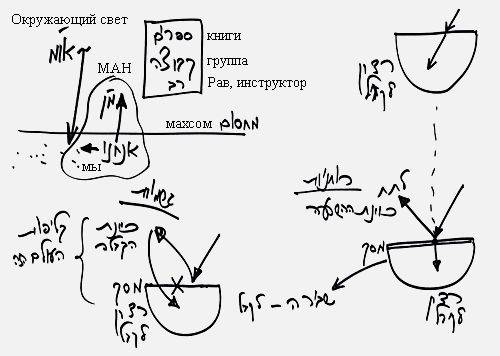 Окружающий свет
או"מ
МАН
מ"ן
ספרים книги
קבוצה группа
רב Рав, инструктор
махсом מחסום
אנחנו
мы
רצון
לקבל
רוחניות
לתת
כוונת ההשפעה
מסך
רצון
לקבל
שבירה - לקבל
גשמיות
קליפות
העולם הזה
כוונת
הקבלה
מסך
רצון
לקבל